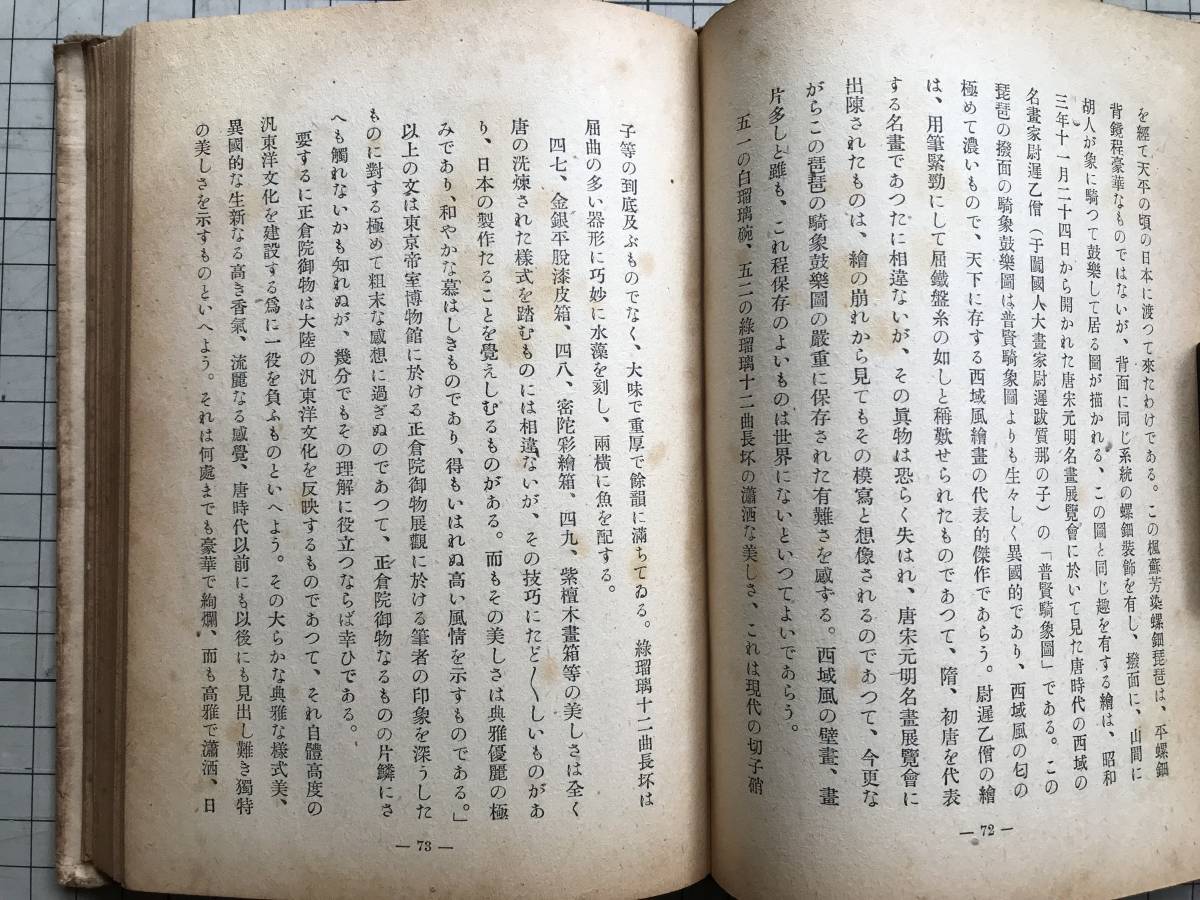 を經て天平の頃の日本に渡つて來たわけである。この楓蘇芳染螺鈿琵琶は、平螺鈿
背鏡程豪華なものではないが、背面に同じ系統の螺鈿裝飾を有し、撥面に、山間に
胡人が象に騎つて鼓樂して居る圖が描かれる、この圖と同じ趣を有する繪は、昭和
三年十一月二十四日から開かれた唐宋元明名畫展覽會に於いて見た唐時代の西域の
名畫家尉遲乙僧（于闐國人大畫家尉遲跋質那の子）の「普賢騎象圖」である。この
琵琶の撥面の騎象鼓樂圖は普賢騎象圖よりも生々しく異國的であり、西域風の匂の
極めて濃いもので、天下に存する西域風繪畫の代表的傑作であらう。尉遲乙僧の繪
は、用筆緊勁にして屈鐵盤糸の如しと稱歎せられたものであつて、隋、初唐を代表
する名畫であつたに相違ないが、その眞物は恐らく失はれ、唐宋元明名畫展覽會に
出陳されたものは、繪の崩れから見てもその模寫と想像されるのであつて、今更な
がらこの琵琶の騎象鼓樂圖の嚴重に保存された有難さを感ずる。西域風の壁畫、畫
片多しと雖も、これ程保存のよいものは世界にないといつてよいであらう。
五一の白瑠璃碗、五二の綠瑠璃十二曲長坏の瀟洒な美しさ、これは現代の切子硝
— 72 —
子等の到底及ぶものでなく、大味で重厚で餘韻に滿ちてゐる。綠瑠璃十二曲長坏は
屈曲の多い器形に巧妙に水藻を刻し、兩橫に魚を配する。
四七、金銀平脫漆皮箱、四八、密陀彩繪箱、四九、紫檀木畫箱等の美しさは全く
唐の洗煉された樣式を踏むものには相違ないが、その技巧にたど〱しいものがあ
り、日本の製作たることを覺えしむるものがある。而もその美しさは典雅優麗の極
みであり、和やかな慕はしきものであり、得もいはれぬ高い風情を示すものである。」
以上の文は東京帝室博物館に於ける正倉院御物展觀に於ける筆者の印象を深うした
ものに對する極めて粗末な感想に過ぎぬのであつて、正倉院御物なるものの片鱗にさ
へも觸れないかも知れぬが、幾分でもその理解に役立つならば幸ひである。
要するに正倉院御物は大陸の汎東洋文化を反映するものであつて、それ自體高度の
汎東洋文化を建設する爲に一役を負ふものといへよう。その大らかな典雅な樣式美、
異國的な生新なる高き香氣、流麗なる感覺、唐時代以前にも以後にも見出し難き獨特
の美しさを示すものといへよう。それは何處までも豪華で絢爛、而も高雅で瀟洒、日
— 73 —